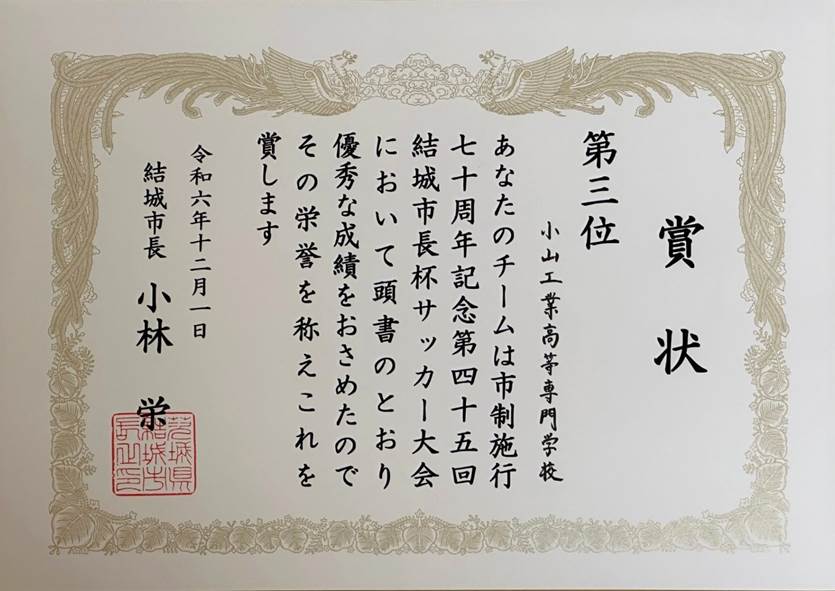 賞状
第三位
小山工業高等専門学校
あなたのチームは市制施行
七十周年記念第四十五回
結城市長杯サッカー大会
において頭書のとおり
優秀な成績をおさめたので
その栄誉を称えこれを
賞します
令和六年十二月一日
結城市長 小林 栄
茨城県
結城市
長之印